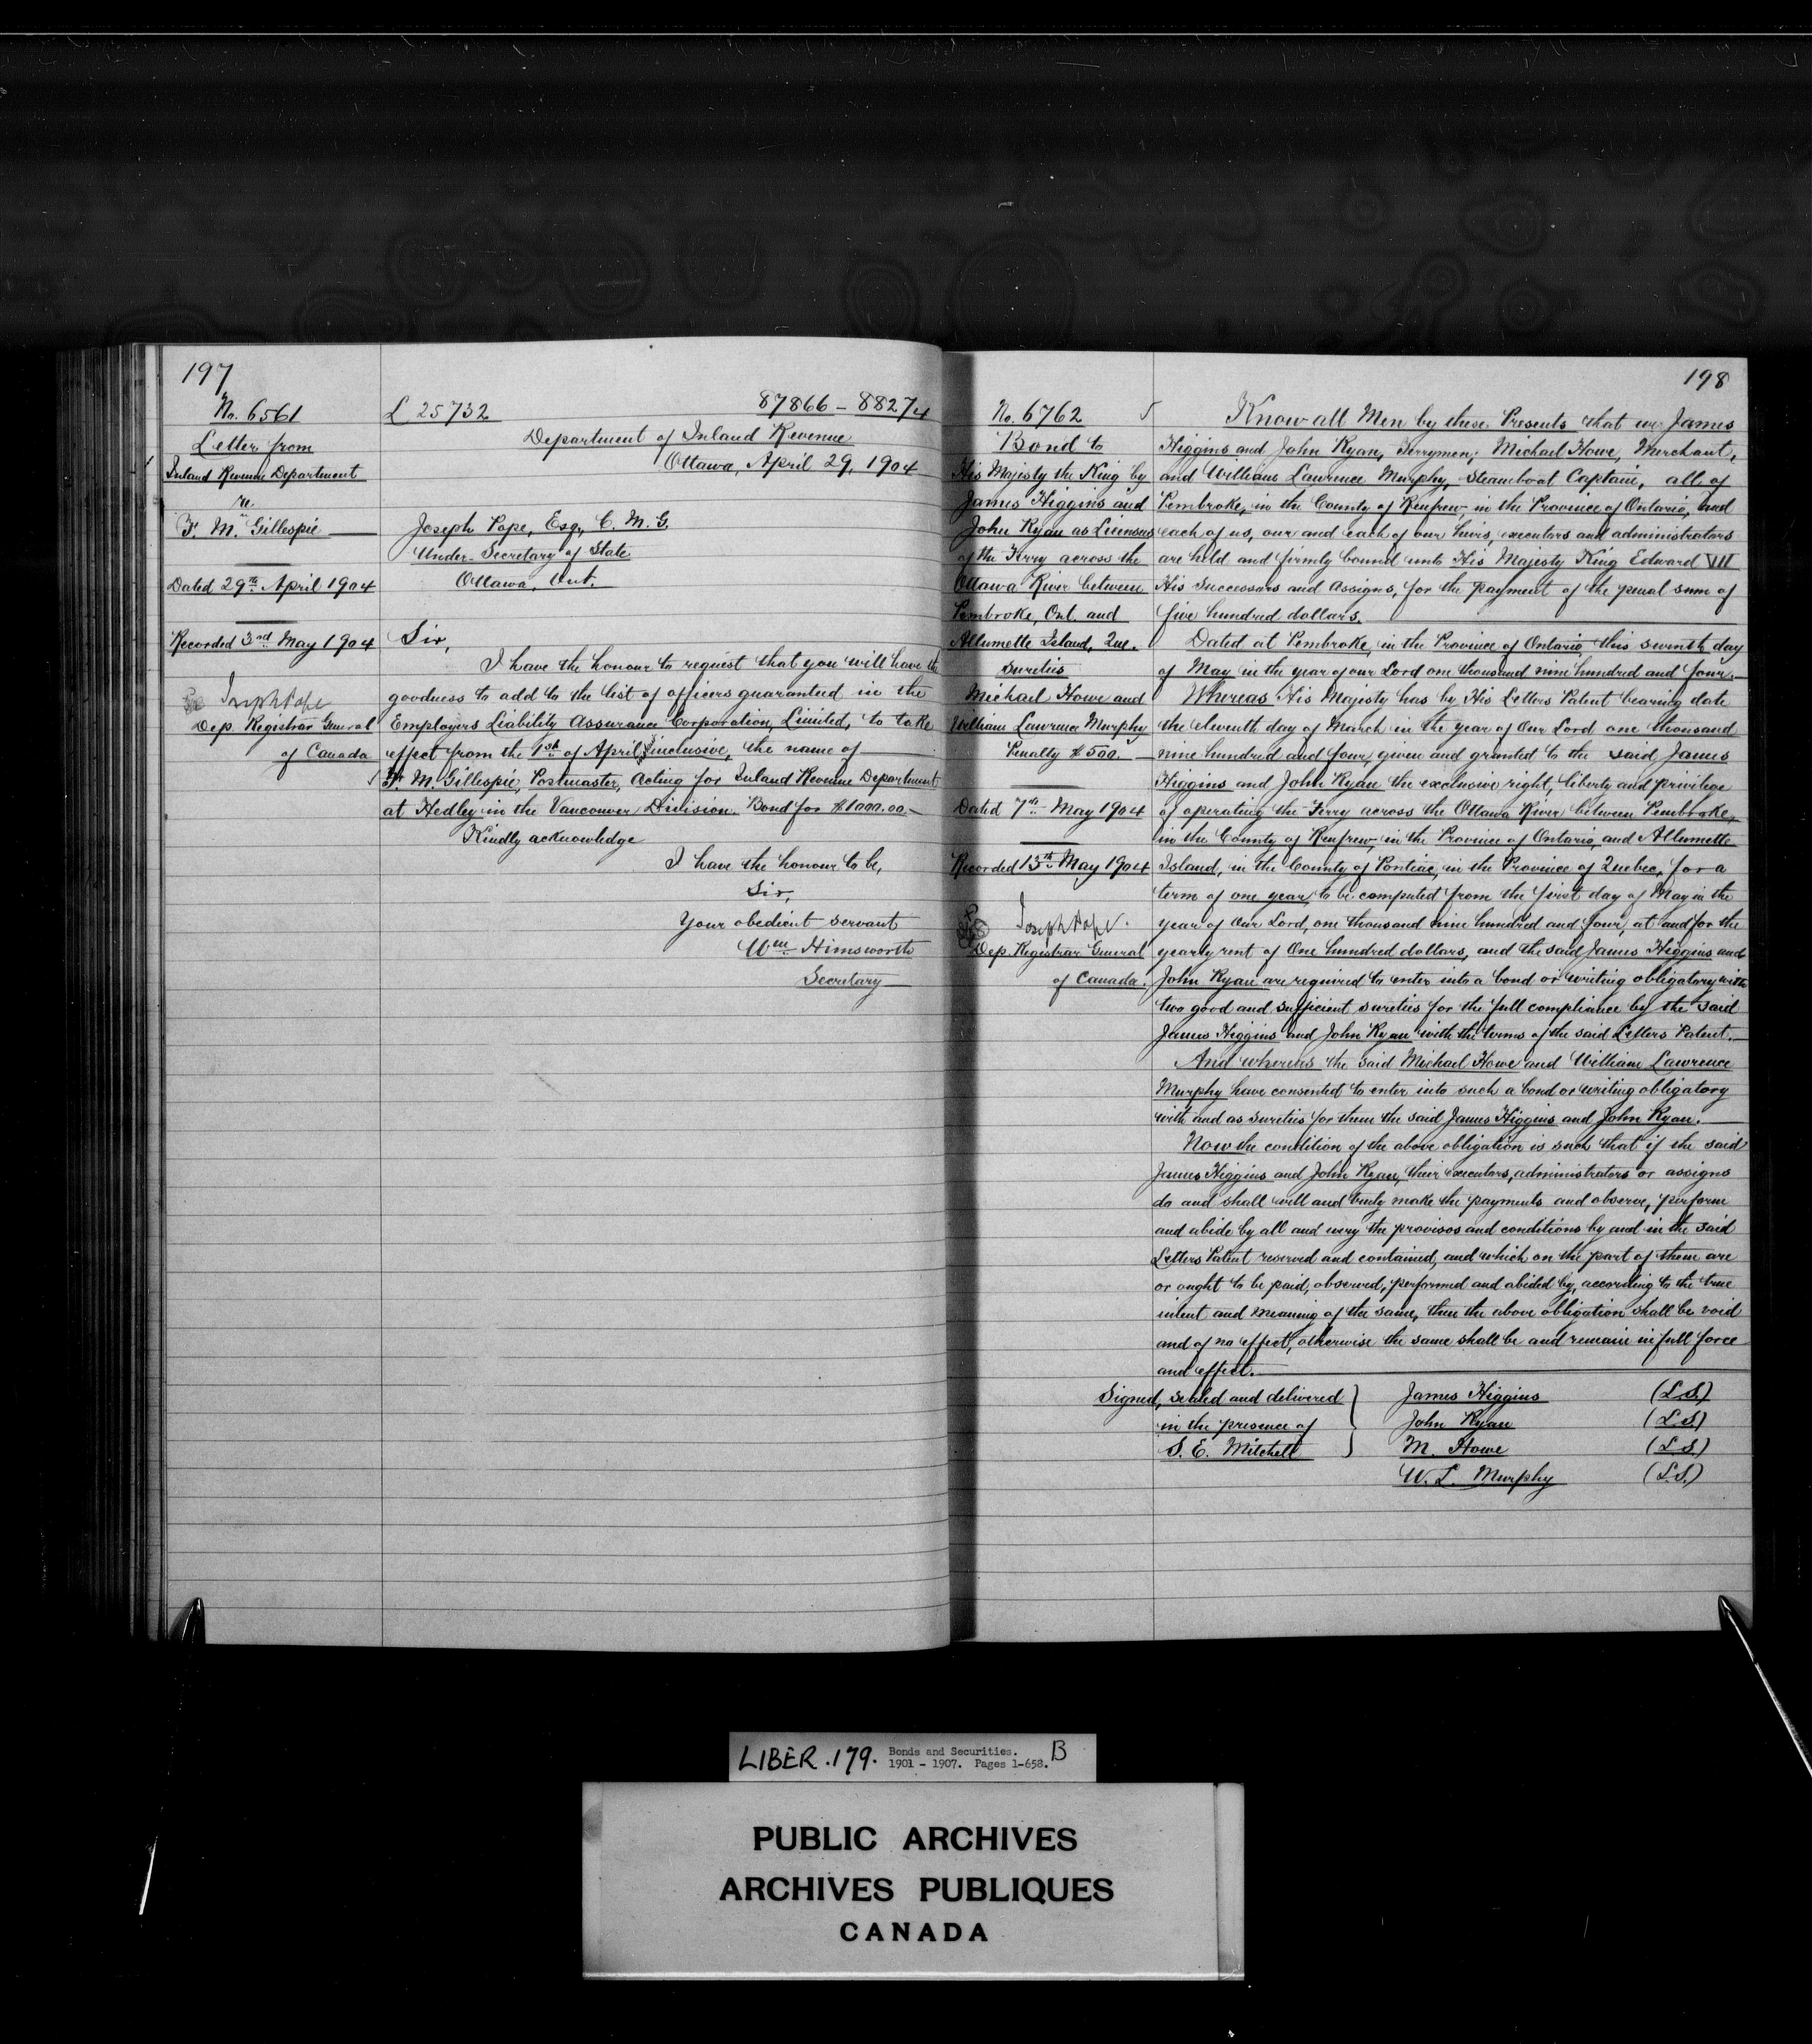 197
No. 6561
Letter from
Inland Revenue Department
re
F. M. Gillespie
Dated 29th April 1904
Recorded 3rd May 1904
Joseph Pope
Dep. Registrar General
of Canada
L 25732
87866 - 88274
Department of Inland Revenue
Ottawa, April 29, 1904
Joseph Pope, Esq., C. M. G.
Under-Secretary of State
Ottawa, Ont.
Sir,
I have the honour to request that you will have the
goodness to add to the list of officers guaranteed in the
Employers Liability Assurance Corporation, Limited, to take
effect from the 1st of April, inclusive, the name of
F. M. Gillespie, Postmaster, Acting for Inland Revenue Department
at Hedley in the Vancouver Division. Bond for $1000.00.
Kindly acknowledge
I have the honour to be,
Sir,
Your obedient servant
Wm Himsworth
Secretary
198
No. 6762
Bond to
His Majesty the King by
James Higgins and
John Ryan as Licensees
of the Ferry across the
Ottawa River between
Pembroke, Ont. and
Allumette Island, Que.
Sureties
Michael Howe and
William Lawrence Murphy
Penalty $500.
Dated 7th May 1904
Recorded 13th May 1904
Joseph Pope.
Dep. Registrar General
of Canada.
Know all Men by these Presents that we James
Higgins and John Ryan, Ferrymen; Michael Howe, Merchant,
and William Lawrence Murphy, Steamboat Captain, all of
Pembroke, in the County of Renfrew, in the Province of Ontario, and
each of us, our and each of our heirs, executors and administrators
are held and firmly bound unto His Majesty King Edward VII
His Successors and Assigns, for the payment of the penal sum of
five hundred dollars.
Dated at Pembroke, in the Province of Ontario, this seventh day
of May in the year of our Lord one thousand nine hundred and four.
Whereas His Majesty has by His Letters Patent bearing date
the eleventh day of March in the year of Our Lord one thousand
nine hundred and four, given and granted to the said James
Higgins and John Ryan the exclusive right, liberty and privilege
of operating the Ferry across the Ottawa River between Pembroke,
in the County of Renfrew, in the Province of Ontario, and Allumette
Island, in the County of Pontiac, in the Province of Quebec, for a
term of one year, to be computed from the first day of May in the
year of Our Lord, one thousand nine hundred and four, at and for the
yearly rent of One hundred dollars, and the said James Higgins and
John Ryan are required to enter into a bond or writing obligatory with
two good and sufficient sureties for the full compliance by the said
James Higgins and John Ryan with the terms of the said Letters Patent.
And whereas the said Michael Howe and William Lawrence
Murphy have consented to enter into such a bond or writing obligatory
with and as sureties for them the said James Higgins and John Ryan.
Now the condition of the above obligation is such that if the said
James Higgins and John Ryan, their executors, administrators or assigns
do and shall well and truly make the payments and observe, perform
and abide by all and every the provisos and conditions by and in the said
Letters Patent reserved and contained, and which on the part of them are
or ought to be paid, observed, performed and abided by, according to the true
intent and meaning of the same, then the above obligation shall be void
and of no effect, otherwise the same shall be and remain in full force
and effect.
Signed, sealed and delivered
in the presence of
S. E. Mitchell
James Higgins (L.S.)
John Ryan (L.S.)
M. Howe (L.S.)
W. L. Murphy (L.S.)
LIBER .179. Bonds and Securities. B
1901 - 1907. Pages 1-658.
PUBLIC ARCHIVES
ARCHIVES PUBLIQUES
CANADA